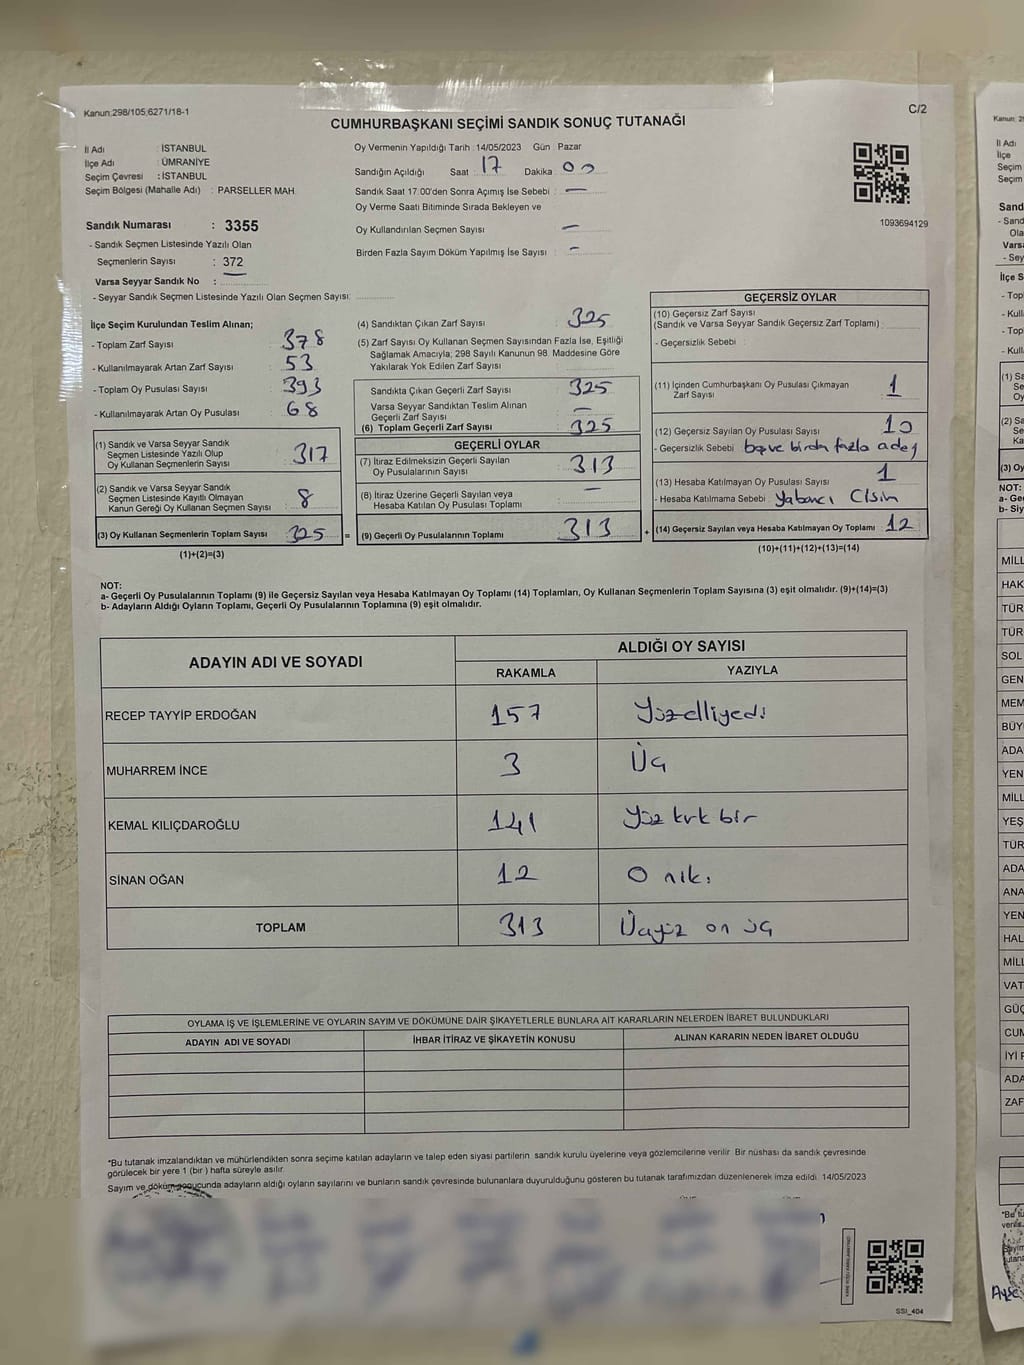 Kanun:298/105;6271/18-1
C/2
CUMHURBAŞKANI SEÇİMİ SANDIK SONUÇ TUTANAĞI
İl Adı : İSTANBUL
İlçe Adı : ÜMRANİYE
Seçim Çevresi : İSTANBUL
Seçim Bölgesi (Mahalle Adı) : PARSELLER MAH.
Sandık Numarası : 3355
- Sandık Seçmen Listesinde Yazılı Olan
Seçmenlerin Sayısı : 372
Varsa Seyyar Sandık No : —
- Seyyar Sandık Seçmen Listesinde Yazılı Olan Seçmen Sayısı:
Oy Vermenin Yapıldığı Tarih : 14/05/2023 Gün : Pazar
Sandığın Açıldığı Saat 17 Dakika 00
Sandık Saat 17:00'den Sonra Açımış İse Sebebi : —
Oy Verme Saati Bitiminde Sırada Bekleyen ve
Oy Kullandırılan Seçmen Sayısı : —
Birden Fazla Sayım Döküm Yapılmış İse Sayısı : —
1093694129
İlçe Seçim Kurulundan Teslim Alınan;
- Toplam Zarf Sayısı : 378
- Kullanılmayarak Artan Zarf Sayısı : 53
- Toplam Oy Pusulası Sayısı : 393
- Kullanılmayarak Artan Oy Pusulası : 68
(1) Sandık ve Varsa Seyyar Sandık
Seçmen Listesinde Yazılı Olup
Oy Kullanan Seçmenlerin Sayısı : 317
(2) Sandık ve Varsa Seyyar Sandık
Seçmen Listesinde Kayıtlı Olmayan
Kanun Gereği Oy Kullanan Seçmen Sayısı : 8
(3) Oy Kullanan Seçmenlerin Toplam Sayısı : 325 =
(1)+(2)=(3)
(4) Sandıktan Çıkan Zarf Sayısı : 325
(5) Zarf Sayısı Oy Kullanan Seçmen Sayısından Fazla İse, Eşitliği
Sağlamak Amacıyla; 298 Sayılı Kanunun 98. Maddesine Göre
Yakılarak Yok Edilen Zarf Sayısı :
Sandıkta Çıkan Geçerli Zarf Sayısı : 325
Varsa Seyyar Sandıktan Teslim Alınan
Geçerli Zarf Sayısı : —
(6) Toplam Geçerli Zarf Sayısı : 325
GEÇERLİ OYLAR
(7) İtiraz Edilmeksizin Geçerli Sayılan
Oy Pusulalarının Sayısı : 313
(8) İtiraz Üzerine Geçerli Sayılan veya
Hesaba Katılan Oy Pusulası Toplamı : —
(9) Geçerli Oy Pusulalarının Toplamı : 313 +
GEÇERSİZ OYLAR
(10) Geçersiz Zarf Sayısı
(Sandık ve Varsa Seyyar Sandık Geçersiz Zarf Toplamı) :
- Geçersizlik Sebebi :
(11) İçinden Cumhurbaşkanı Oy Pusulası Çıkmayan
Zarf Sayısı : 1
(12) Geçersiz Sayılan Oy Pusulası Sayısı : 10
- Geçersizlik Sebebi : boş ve birden fazla adet
(13) Hesaba Katılmayan Oy Pusulası Sayısı : 1
- Hesaba Katılmama Sebebi : Yabancı Cisim
(14) Geçersiz Sayılan veya Hesaba Katılmayan Oy Toplamı : 12
(10)+(11)+(12)+(13)=(14)
NOT:
a- Geçerli Oy Pusulalarının Toplamı (9) ile Geçersiz Sayılan veya Hesaba Katılmayan Oy Toplamı (14) Toplamları, Oy Kullanan Seçmenlerin Toplam Sayısına (3) eşit olmalıdır. (9)+(14)=(3)
b- Adayların Aldığı Oyların Toplamı, Geçerli Oy Pusulalarının Toplamına (9) eşit olmalıdır.
ADAYIN ADI VE SOYADI
ALDIĞI OY SAYISI
RAKAMLA YAZIYLA
RECEP TAYYİP ERDOĞAN 157 Yüzelliyedi
MUHARREM İNCE 3 Üç
KEMAL KILIÇDAROĞLU 141 Yüz kırk bir
SİNAN OĞAN 12 O niki
TOPLAM 313 Üçyüz on üç
OYLAMA İŞ VE İŞLEMLERİNE VE OYLARIN SAYIM VE DÖKÜMÜNE DAİR ŞİKAYETLERLE BUNLARA AİT KARARLARIN NELERDEN İBARET BULUNDUKLARI
ADAYIN ADI VE SOYADI İHBAR İTİRAZ VE ŞİKAYETİN KONUSU ALINAN KARARIN NEDEN İBARET OLDUĞU
*Bu tutanak imzalandıktan ve mühürlendikten sonra seçime katılan adayların ve talep eden siyasi partilerin sandık kurulu üyelerine veya gözlemcilerine verilir. Bir nüshası da sandık çevresinde
görülecek bir yere 1 (bir) hafta süreyle asılır.
Sayım ve döküm sonucunda adayların aldığı oyların sayılarını ve bunların sandık çevresinde bulunanlara duyurulduğunu gösteren bu tutanak tarafımızdan düzenlenerek imza edildi. 14/05/2023
SSI_404
Kanun: 29
İl Adı
İlçe
Seçim
Seçim
Sand
- Sand
Ola
Varsa
- Sey
İlçe S
- Top
- Kull
- Top
- Kull
(1) Sa
Se
Oy
(2) Sa
Se
Ka
(3) Oy
NOT:
a- Geç
b- Siy
MİLL
HAK
TÜR
TÜR
SOL
GEN
MEM
BÜY
ADA
YEN
MİLL
YEŞ
TÜR
ADA
ANA
YEN
HAL
MİLL
VAT
GÜÇ
CUM
İYİ P
ADA
ZAF